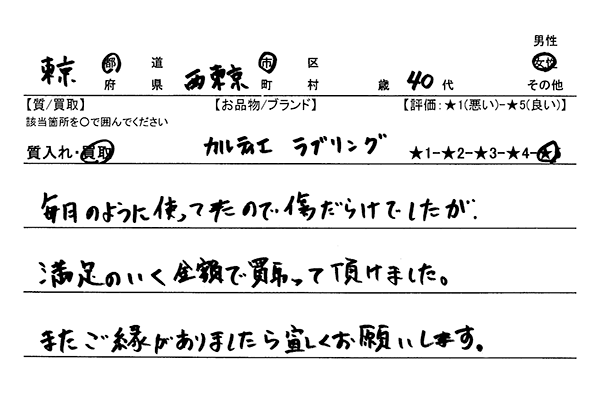 男性
東京 都 道 西東京 市 区 女性
府 県 町 村 歳 40 代 その他
【質/買取】 【お品物/ブランド】 【評価:★1(悪い)-★5(良い)】
該当箇所を○で囲んでください
質入れ・買取 カルティエ ラブリング ★1-★2-★3-★4-★5
毎日のように使ってたので傷だらけでしたが、
満足のいく金額で買取って頂けました。
またご縁がありましたら宜しくお願いします。